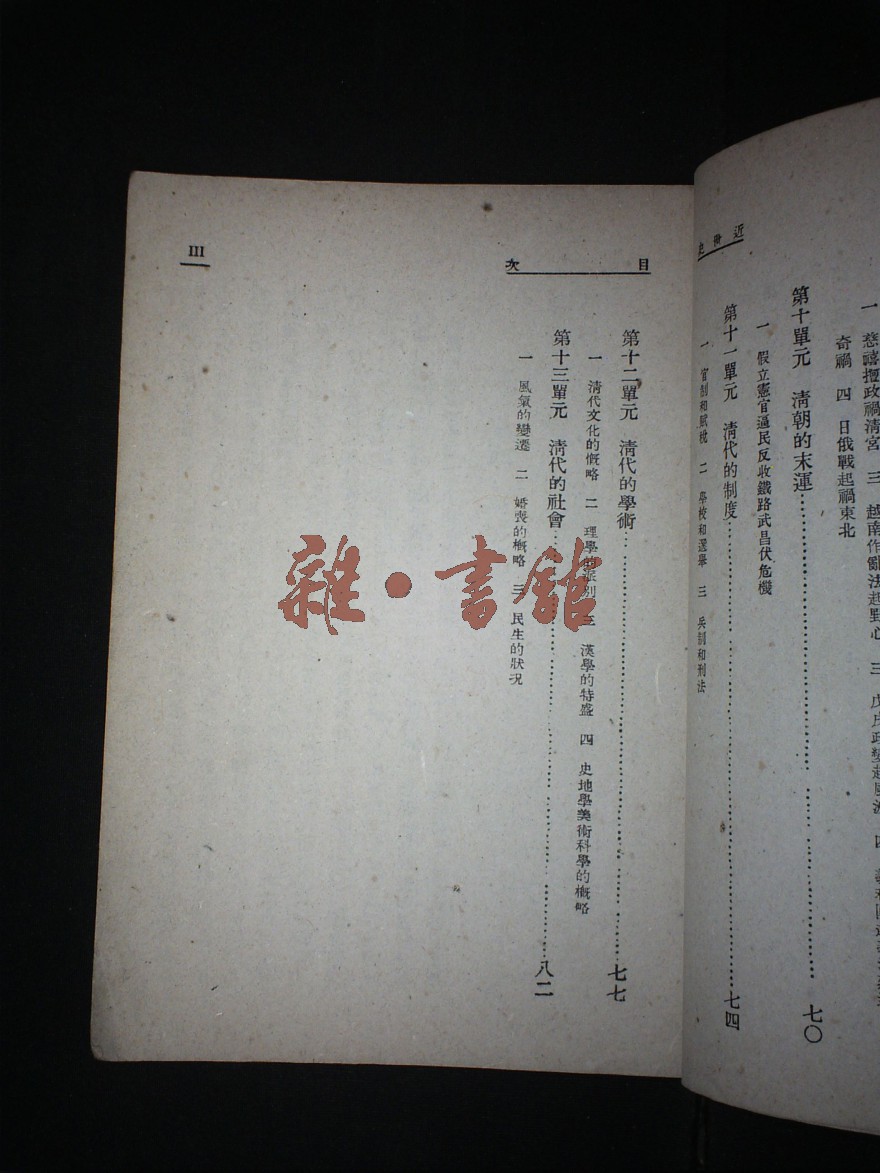 近世史
一 慈禧擅政禍清宮 三 越南作亂法起野心 三 戊戌政變起風波 四
奇禍 四 日俄戰起禍東北
第十單元 清朝的末運…七〇
一 假立憲官逼民反收鐵路武昌伏危機
第十一單元 清代的制度…七四
一 官制和賦稅 二 學校和選舉 三 兵制和刑法
目次
III
第十二單元 清代的學術…七七
一 清代文化的慨略 二 理學的派別 三 漢學的特盛 四 史地學美術科學的概略
第十三單元 清代的社會…八二
一 風氣的變遷 二 婚喪的概略 三 民生的狀況
雜·書館